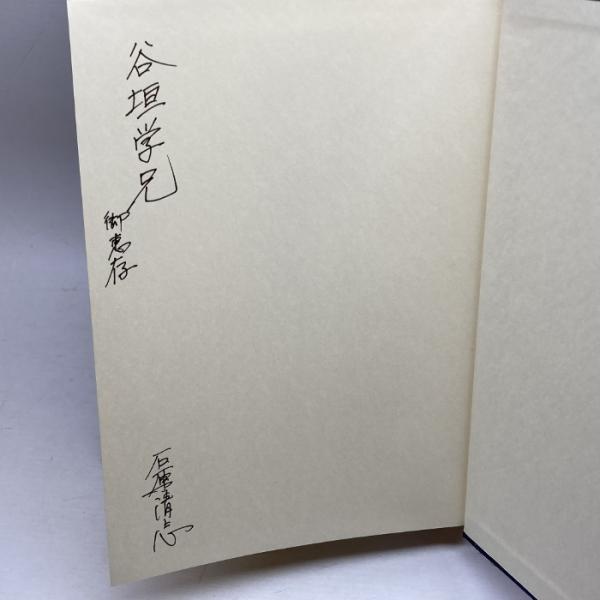 谷垣学兄
御恵存
石原清志